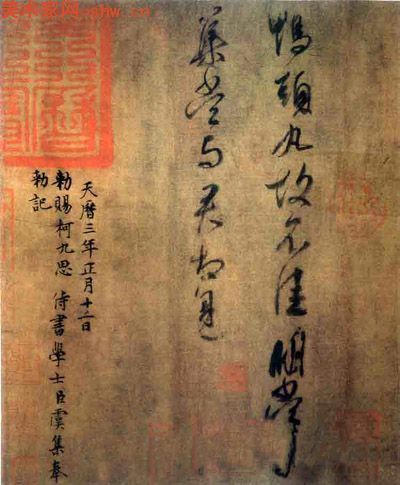 美术家网
鴨頭丸故不佳明當必
集當與君相見
天曆三年正月十二日
勑賜柯九思 侍書學士臣虞集奉
勑記